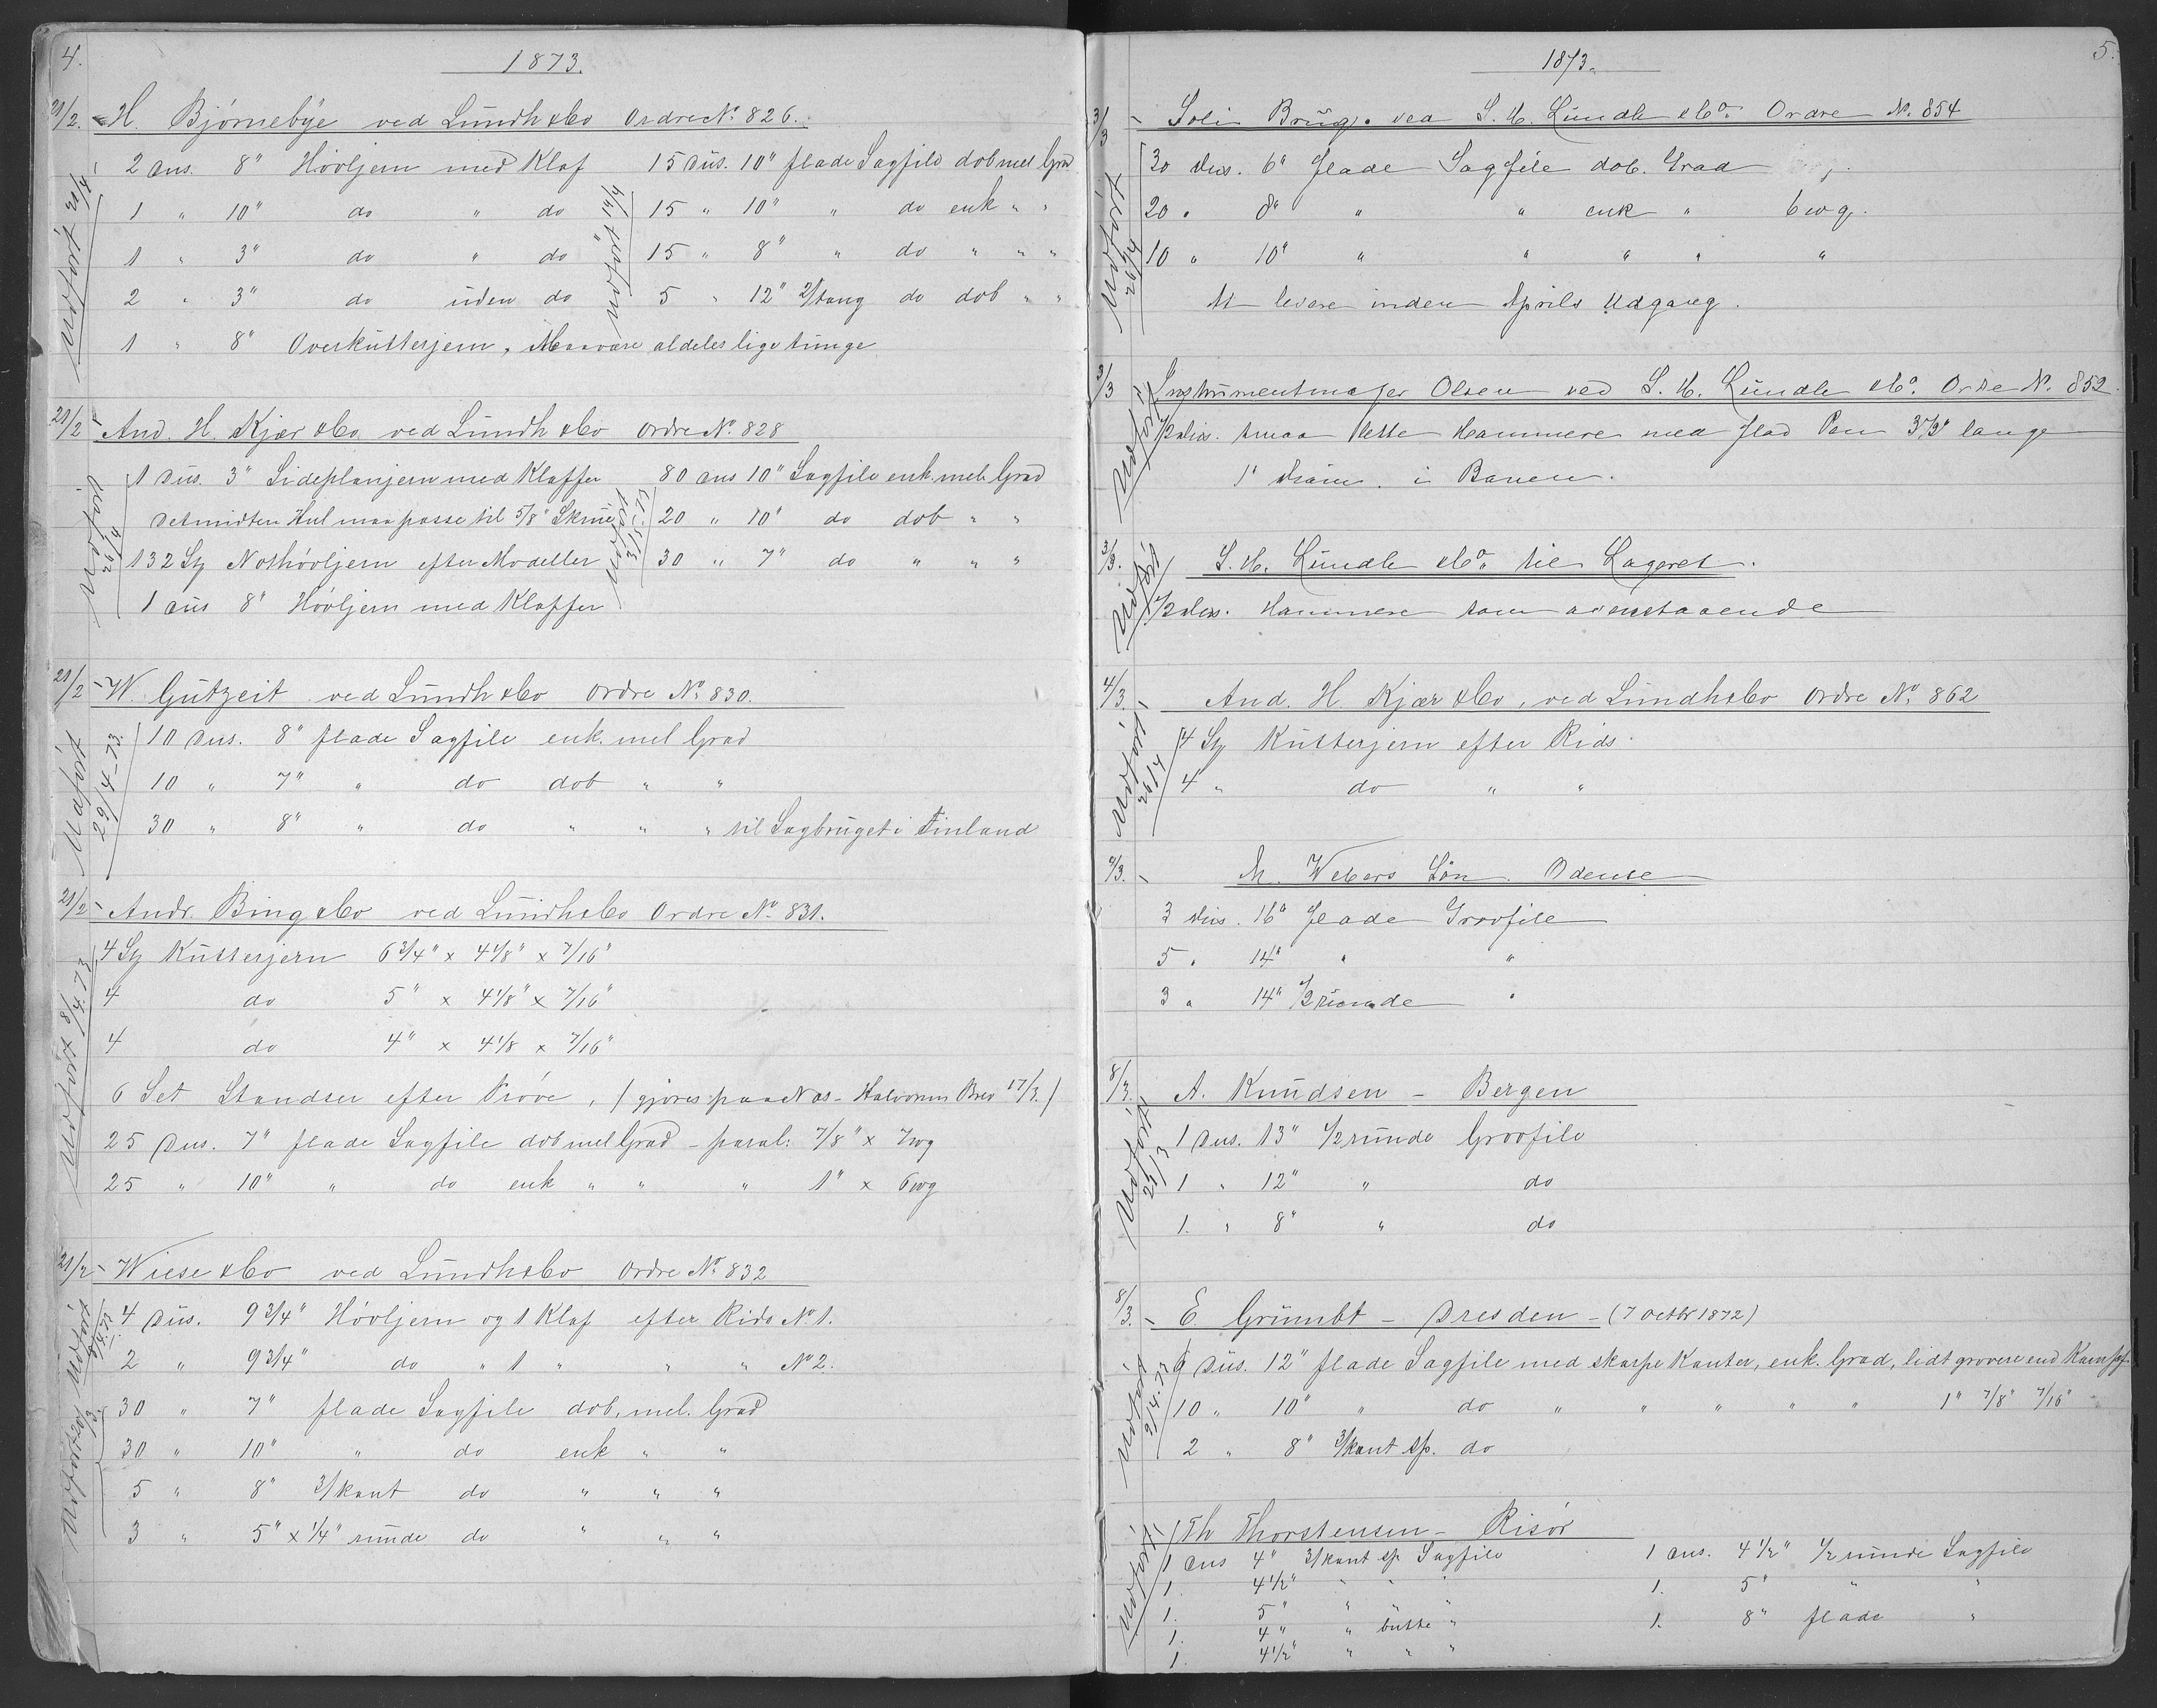 4.
1873.
21/2. H. Bjørnebye ved Lundh & Co Ordre No. 826.
Udført 20/4
2 Dus. 8" Høvljern med Klaf
1 " 10" do " do
1 " 3" do " do
2 " 3" do uden do
1 " 8" Overkutterjern, Maa være aldeles lige tunge
Udført 14/4
15 Dus. 10" flade Sagfile dob mel Grad
15 " 10" " do enk " "
15 " 8" " do " " "
5 " 12" do dob " "
21/2 And. H. Kjær & Co ved Lundh & Co Ordre No. 828
Udført 26/4
1 Dus. 3" Sideplanjern med Klaffer
Det midten Hul maa passe til 5/8" Skrue
132 St Nothøvljern efter Modeller
1 Dus 8" Høvljern med Klaffer
Udført 3/5-73
80 Dus 10" Sagfile enk. mel. Grad
20 " 10" do dob " "
30 " 7" do " " "
21/2 W. Gutzeit ved Lundh & Co Ordre No. 830.
Udført 29/4-73.
10 Dus. 8" flade Sagfile enk. mel Grad
10 " 7" " do dob " "
30 " 8" " do " " " til Sagbruget i Finland
21/2 Andr. Bing & Co ved Lundh & Co Ordre No. 831.
Udført 8/4.73
4 St Kutterjern 6 3/4" x 4 1/8" x 7/16"
4 do 5" x 4 1/8" x 7/16"
4 do 4" x 4 1/8 x 7/16"
6 Set Standser efter Prøve, (gjøres paa Næs - Halvorsens Brev 17/3.)
25 Dus. 7" flade Sagfile dob mel Grad - paral: 7/8" x 7wg
25 " 10" " do enk " " " 1" x 6wg
21/2 Wiese & Co ved Lundh & Co Ordre No. 832
Udført
4 Dus. 9 3/4" Høvljern og 1 Klaf efter Rids No 1.
2 " 9 3/4" do " 1 " " " No 2.
Udført 20/3.
30 " 7" flade Sagfile dob. mel. Grad
30 " 10" " do enk " "
5 " 8" 3/kant do " " "
3 " 5" x 1/4" runde do " " "
5.
1873.
3/3 Soli Brug. ved S. H. Lundh & Co. Ordre No. 854
Udført 26/4
30 Dus. 6" flade Sagfile dob. Grad
20 " 8" " " enk " 6wg.
10 " 10" " " " " "
At levere inden Aprils Udgang.
3/3 Instrumentmager Olsen ved S. H. Lundh & Co. Ordre No. 852.
Udført
1/2 Dus. smaa Hammere med flad Pen 3 1/2" lange
1" Diam. i Banen.
3/3. S. H. Lundh & Co. til Lageret.
Udført
1/2 Dus. Hammere som ovenstaaende
4/3. And. H. Kjær & Co, ved Lundh & Co Ordre No. 862
Udført 26/4
4 St Kutterjern efter Rids.
4 " do " "
4/3. M. Webers Søn. Odense
3 Dus. 16" flade Grovfile
5 " 14" " "
3 " 14" 1/2 runde "
8/3. A. Knudsen - Bergen
Udført 21/3
1 Dus. 13" 1/2 runde Grovfile
1 " 12" " do
1. " 8" " do
8/3. E. Grumbt - Dresden - (7 Octbr 1872)
Udført 2/4.73
9 Dus. 12" flade Sagfile med skarpe Kanter, enk. Grad, lidt grovere end
10 " 10" " do " " " " " 1" 7/8" 7/16"
2 " 8" 3/kant sp. do
Th Thorstensen - Risør
Udført
1 Dus 4" 3/kant sp Sagfile
1. 4 1/2" " " "
1. 5" " " "
1. 4" " butte "
1. 4 1/2" " " "
1 Dus. 4 1/2" 1/2 runde Sagfile
1. 5" " "
1. 8" flade "